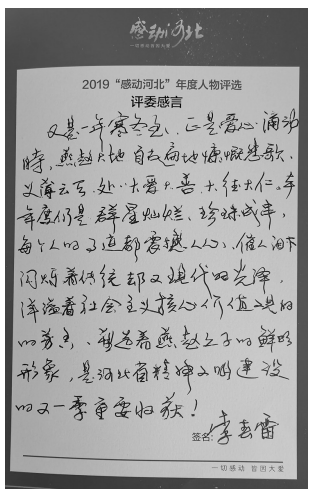 感动河北
一切感动 皆因大爱
2019“感动河北”年度人物评选
评委感言
又是一年寒冬至、正是爱心涌动
时，燕赵大地自古遍地慷慨悲歌、
义薄云天，处处大爱大善大仁。本
年度仍是群星灿烂、珍珠成串，
每个人的事迹都震撼人心、催人泪下
闪烁着传统却又现代的光泽，
洋溢着社会主义核心价值观的
的芳香、塑造着燕赵之子的鲜明
形象，是河北省精神文明建设
的又一季重要收获！
签名：李春雷
一切感动 皆因大爱